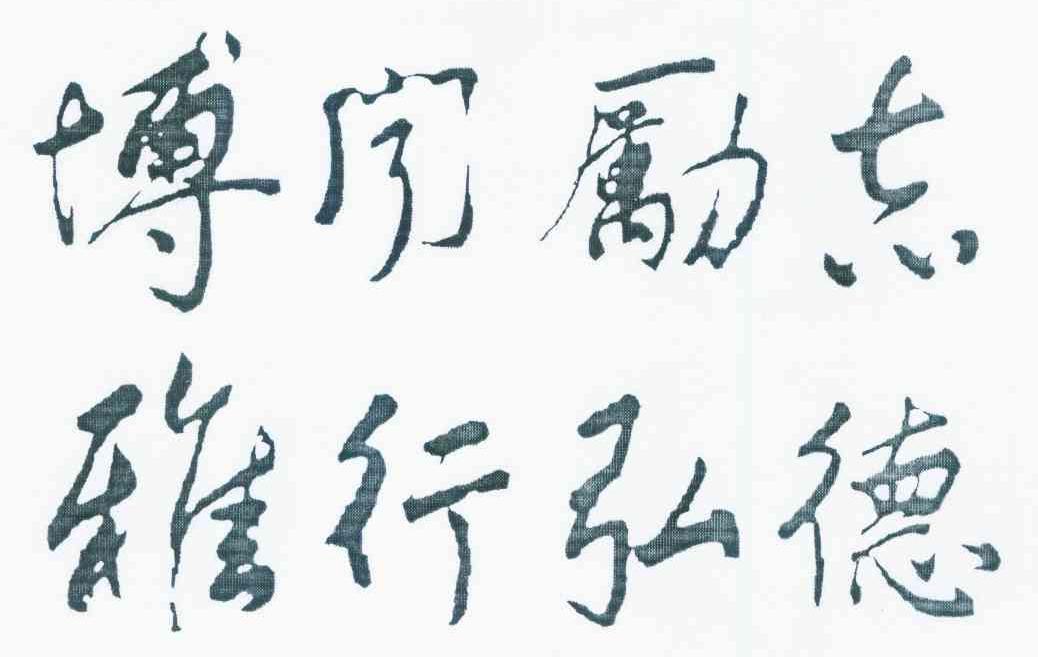 博闻励志
雅行弘德